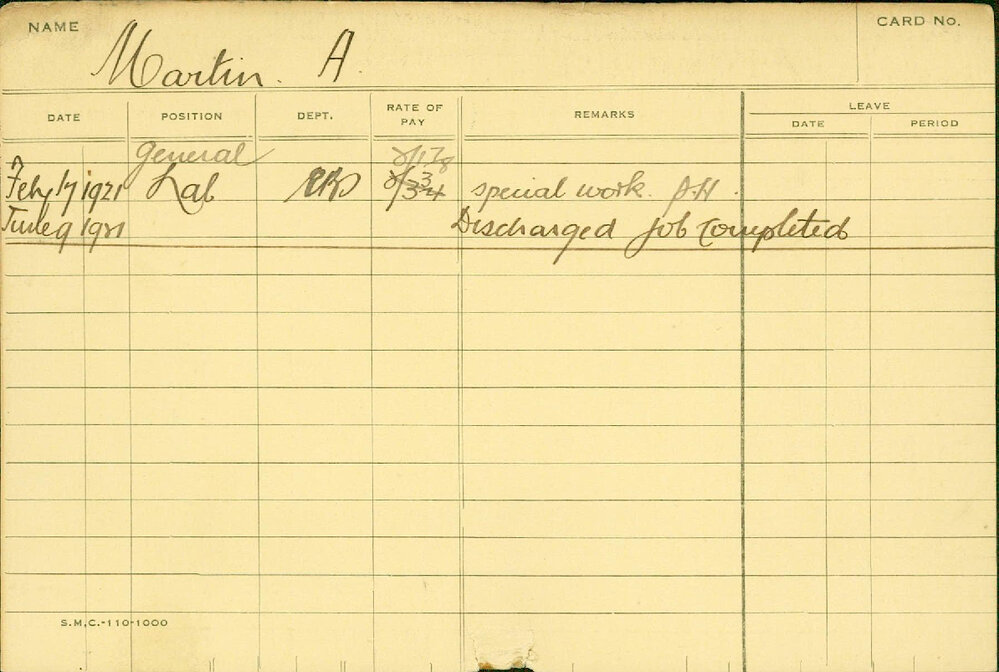 NAME Martin. A. CARD No.
DATE POSITION DEPT. RATE OF PAY REMARKS LEAVE
DATE PERIOD
General
Feby 17 1921 Lab special work. A.H.
June 9 1921 Discharged Job Completed
S.M.C.-110-1000